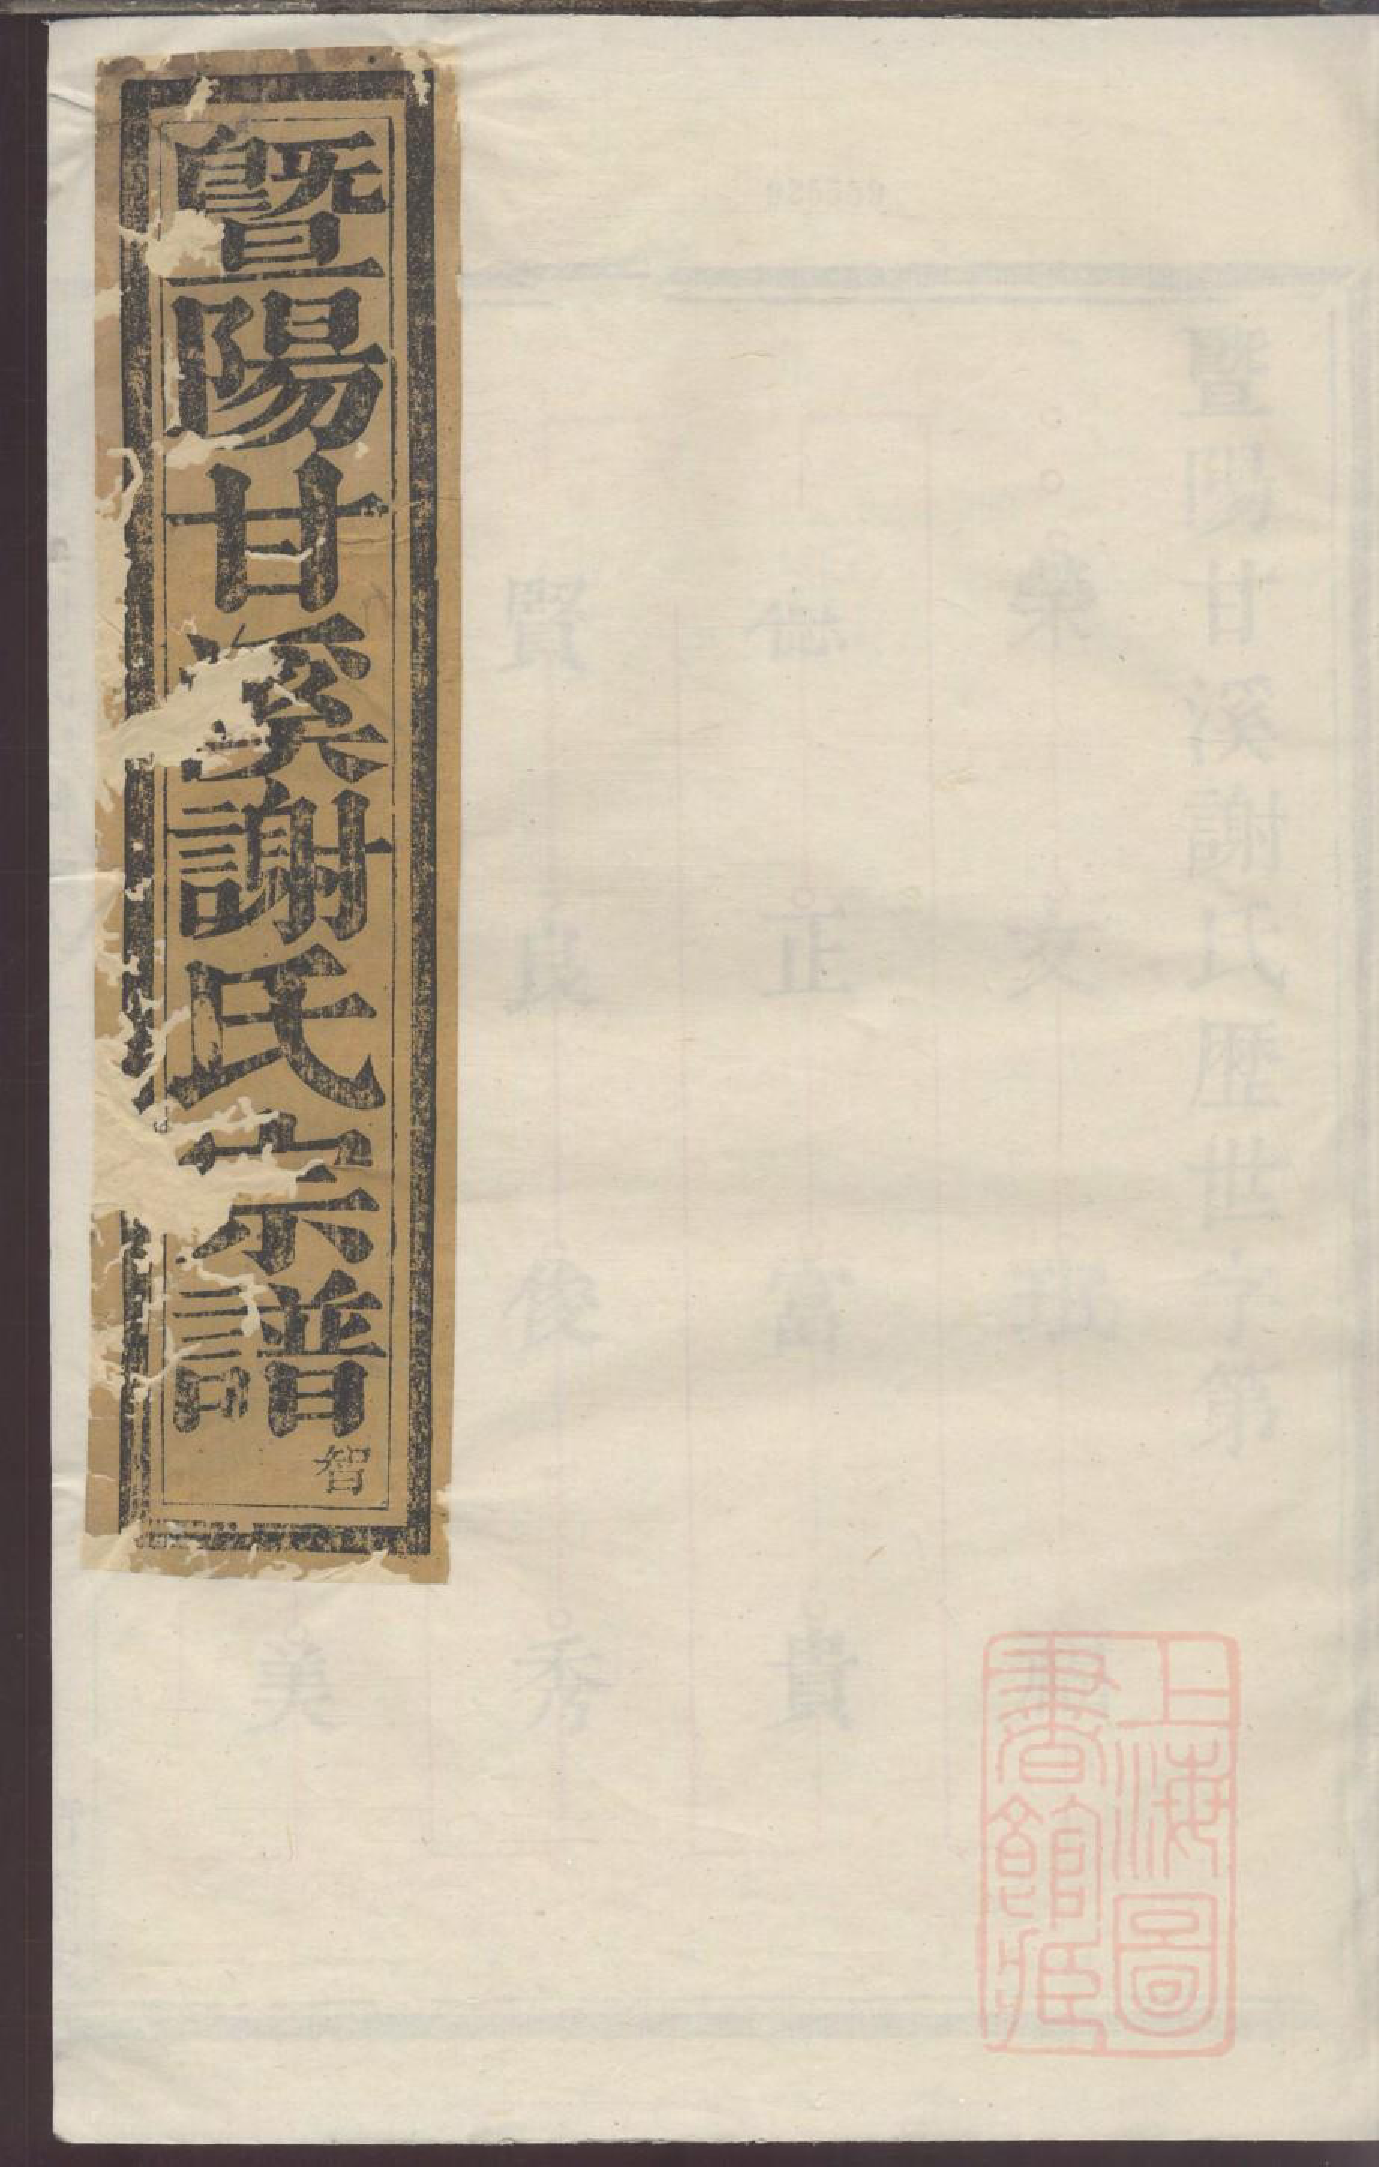 暨陽甘溪謝氏宗譜
智
暨陽甘溪謝氏歷世字第
文
正 富 貴
賢 良 俊 秀
美
上海圖
書館藏